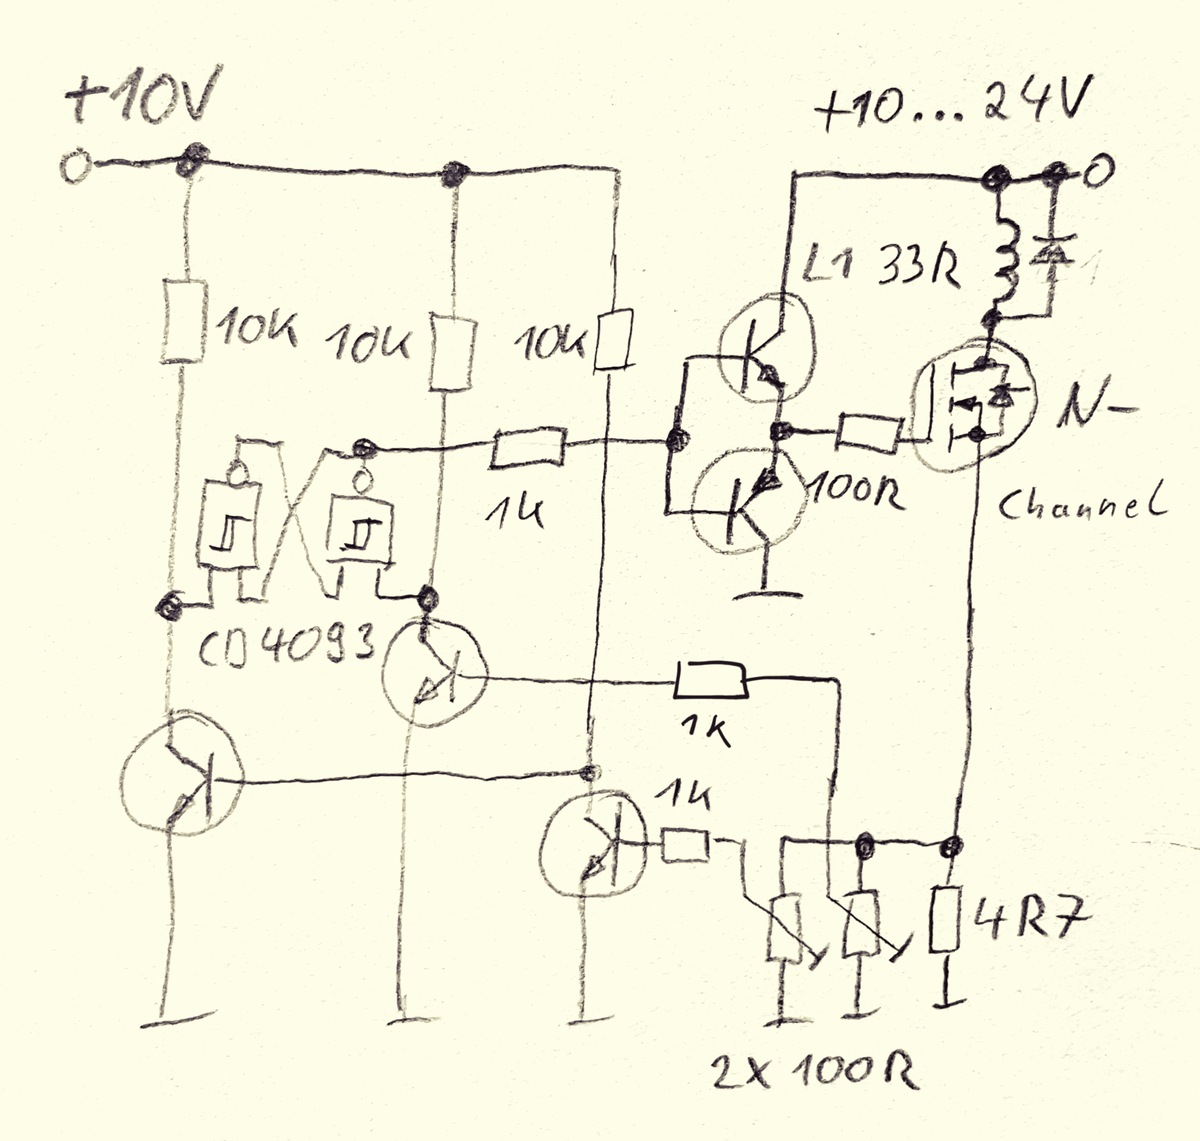 +10V
+10...24V
L1 33R
10K
10K
10K
N-
Channel
1K
100R
CD4093
1K
1K
4R7
2x 100R